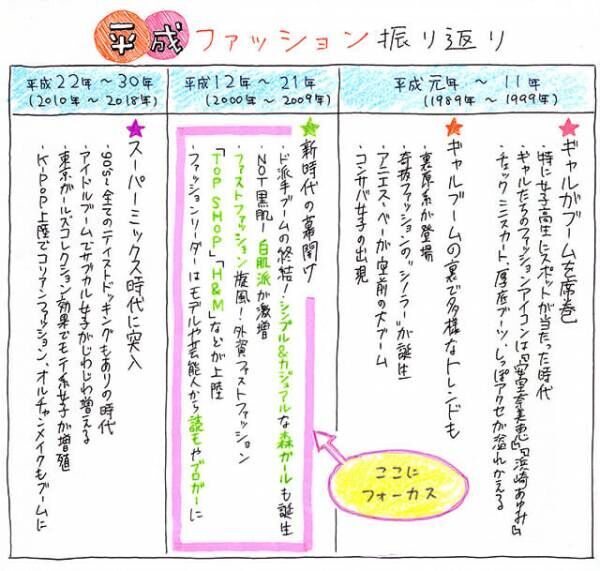 平成ファッション振り返り
平成元年～11年
(1989年～1999年)
★ギャルがブームを席巻
・特に女子高生にスポットが当たった時代
・ギャルたちのファッションアイコンは『安室奈美恵』『浜崎あゆみ』
・チェックミニスカート、厚底ブーツ、しっぽアクセが溢れかえる
★ギャルブームの裏で多様なトレンドも
・裏原系が登場
・奇抜ファッションの"シノラー"が誕生
・アニエス・ベーが空前の大ブーム
・コンサバ女子の出現
平成12年～21年
(2000年～2009年)
★新時代の幕開け
・ド派手ブームの終結！シンプル&カジュアルな森ガールも誕生
・NOT黒肌！白肌派が激増
・ファストファッション旋風！外資ファストファッション
「TOP SHOP」「H&M」などが上陸
・ファッションリーダーはモデルや芸能人から読モやブロガーに
ここに
フォーカス
平成22年～30年
(2010年～2018年)
★スーパーミックス時代に突入
・90s～全てのテイストドッキングもありの時代
・アイドルブームでサブカル女子がじわじわ増える
・東京ガールズコレクション効果でモテ系女子が増殖
・K-POP上陸でコリアンファッション、オルチャンメイクもブームに